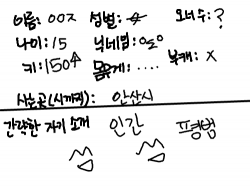 이름: 00x 성별: 수 오너수: ?
나이: 15 닉네임: 0ㅎ0
키: 150수 몸무게: .... 복캐: X
사는곳(시까지): 안산시
간략한 자기 소개 인간 평범